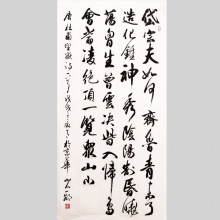 岱宗夫如何齊魯青未了
造化鍾神秀陰陽割昏曉
蕩胸生曾雲決眥入歸鳥
會當凌絕頂一覽眾山小
唐杜甫望嶽詩一首 於京華